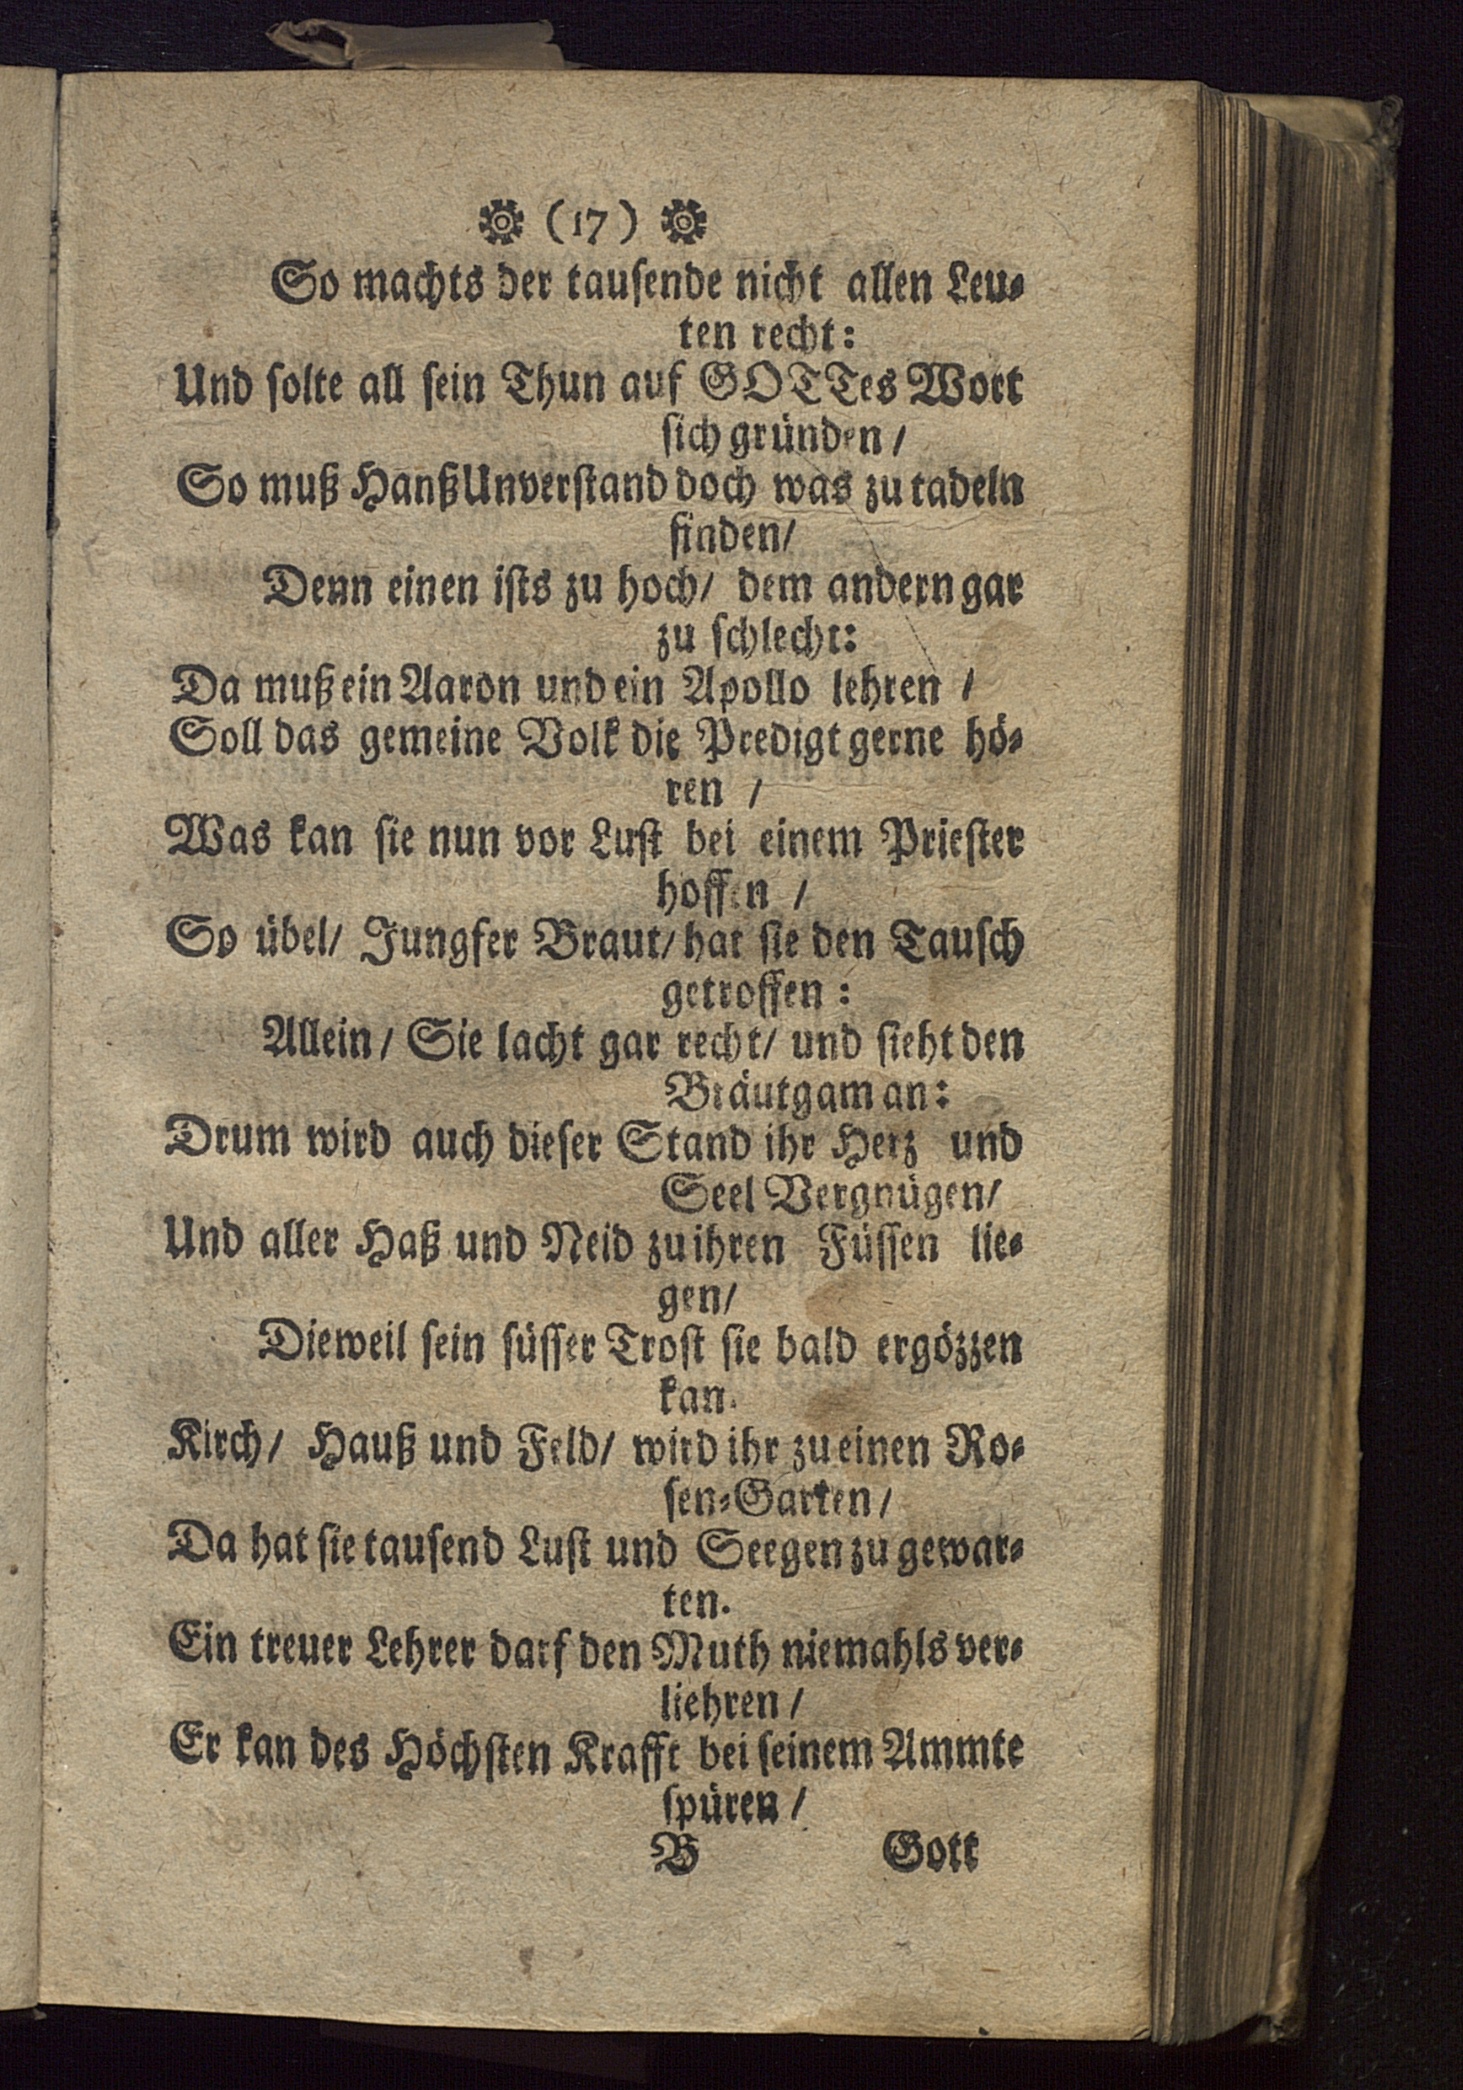 (17)
So machts der tausende nicht allen Leu-
ten recht:
Und solte all sein Thun auf GOTTes Wort
sich gründen /
So muß Hanß Unverstand doch was zu tadeln
finden /
Denn einen ists zu hoch / dem andern gar
zu schlecht:
Da muß ein Aaron und ein Apollo lehren /
Soll das gemeine Volk die Predigt gerne hö-
ren /
Was kan sie nun vor Lust bei einem Priester
hoffen /
So übel / Jungfer Braut / hat sie den Tausch
getroffen :
Allein / Sie lacht gar recht / und sieht den
Bräutgam an:
Drum wird auch dieser Stand ihr Herz und
Seel Vergnügen /
Und aller Haß und Neid zu ihren Füssen lie-
gen /
Dieweil sein süsser Trost sie bald ergözzen
kan.
Kirch / Hauß und Feld / wird ihr zu einen Ro-
sen-Garten /
Da hat sie tausend Lust und Seegen zu gewar-
ten.
Ein treuer Lehrer darf den Muth niemahls ver-
liehren /
Er kan des Höchsten Krafft bei seinem Ammte
spüren /
B Gott